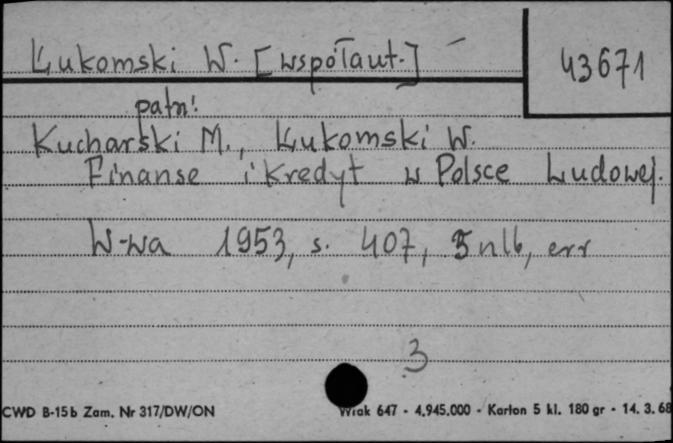 Łukomski W. [współaut.] –
43671
patrz!
Kucharski M., Łukomski W.
Finanse i Kredyt w Polsce Ludowej.
W-wa 1953, s. 407, 5 nlb, err
3
CWD B-15b Zam. Nr 317/DW/ON
Wrak 647 - 4.945.000 - Karton 5 kl. 180 gr - 14. 3. 68